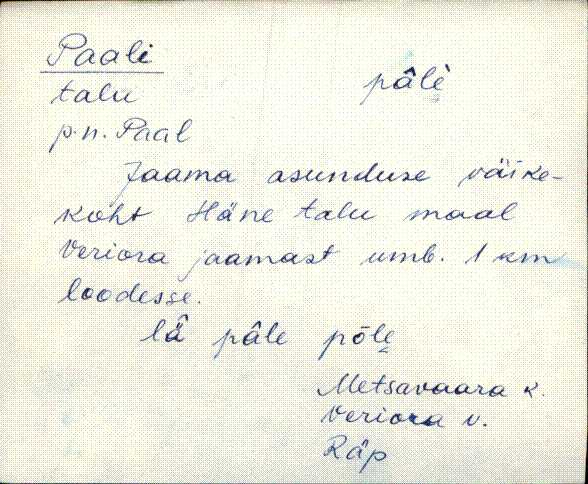 Paali
talu pâlè
p.n. Paal
Jaama asunduse väike-
koht Häne talu maal
Veriora jaamast umb. 1 km
loodesse.
lä̂ pâle põle
Metsavaara k.
Veriora v.
Räp